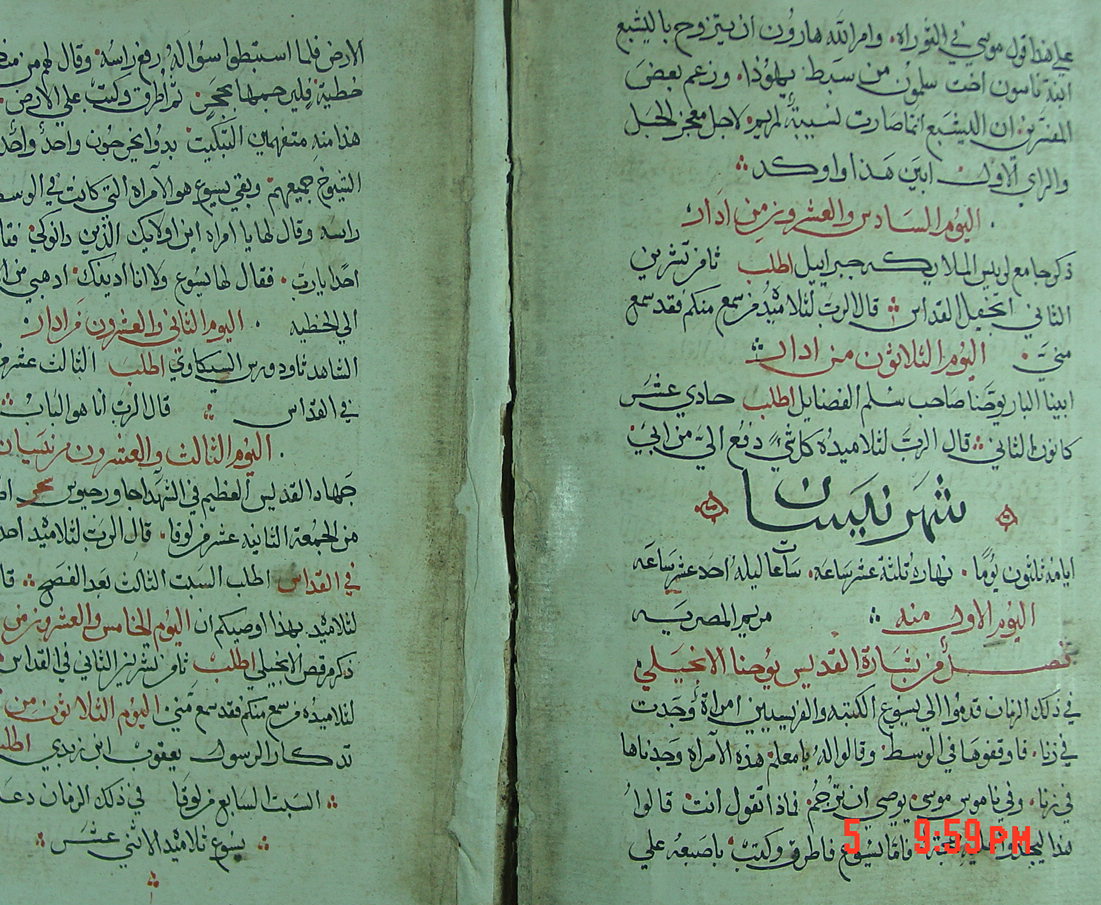 علي هذا قول موسي في التوراه، وامر الله هارون ان يتزوج باليشبع
ابنة ناسون اخت سلمون من سبط يهوذا، وزعم بعض
المفسرين ان اليشبع انما صارت نسيبة لمريم لاجل معجز الحبل
والراي الاول ابين هذا واوكد
اليوم السادس والعشرون من ادار
ذكر جامع لريس الملايكه جبراييل اطلب ثامن تشرين
الثاني انجيل القداس قال الرب لتلاميذه من سمع منكم فقد سمع
مني. اليوم الثلاثون من ادار
ابينا البار يوحنا صاحب سلم الفضايل اطلب حادي عشر
كانون الثاني قال الرب لتلاميذه كل شيء دفع الي من ابي
شهر نيسان
ايامه ثلثون يوما. نهاره ثلثة عشر ساعة. ساعات ليله احد عشر ساعه
اليوم الاول منه مريم المصريه
فصل من بشارة القديس يوحنا الانجيلي
في ذلك الزمان قدموا الي يسوع الكتبه والفريسيين امراة وجدت
في زنا. فاوقفوها في الوسط. وقالوا له يا معلم هذه الامراه وجدناها
في زنا. وفي ناموس موسي يوصي ان ترجم. فماذا تقول انت. قالوا
هذا ليجدوا عليه فاما يسوع فاطرق وكتب باصبعه علي
5 9:59 PM
الارض فلما استبطوا سواله رفع راسه. وقال لهم من منكم
خطية فليرجمها بحجر. ثم اطرق وكتب علي الارض
هذا منه متفهمين التبكيت بدوا يخرجون واحد واحد
الشيوخ جميعهم وبقي يسوع هو والامراه التي كانت في الوسط
راسه وقال لها يا امراه اين اوليك الذين دانوكي. فقا
احد يا رب. فقال لها يسوع ولا انا ادينك. ادهبي من
الي الخطيه. اليوم الثاني والعشرون من ادار
الشاهد ثاودورس السيكاوي اطلب الثالث عشر
في القداس قال الرب انا هو الباب
اليوم الثالث والعشرون من نيسان
جهاد القديس العظيم في الشهدا جاورجيوس سحر
من الجمعة الثانيه عشر من لوقا. قال الرب لتلاميذه
في القداس اطلب السبت الثالث بعد الفصح
لتلاميذه بهذا اوصيكم ان اليوم الخامس والعشرون من
ذكر مرقص الانجيلي اطلب ثامن تشرين الثاني في القداس
لتلاميذه من سمع منكم فقد سمع مني اليوم الثلاثون من
تدكار الرسول يعقوب ابن زبدي اطلب
السبت السابع من لوقا في ذلك الزمان دعا
يسوع تلاميذه الاثني عشر